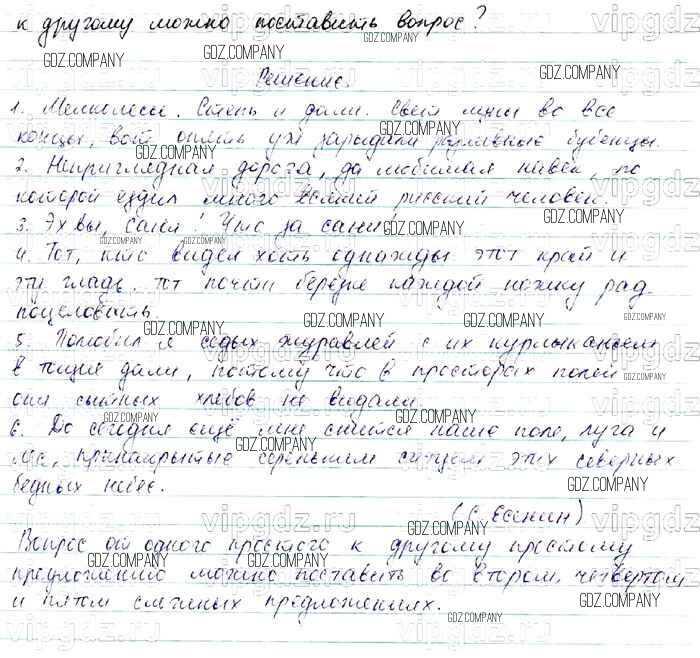 к другому можно поставить вопрос?
Решение.
1. Мелколесье. Степь и дали. Свет луны во все
концы, вот опять уж зарыдали разливные бубенцы.
2. Неприглядная дорога, да любимая навек, по
которой ездил много всякий русский человек.
3. Эх вы, сани! Что за сани!
4. Тот, кто видел хоть однажды этот край и
эту гладь, тот почти берёзке каждой ножку рад
поцеловать.
5. Полюбил я седых журавлей с их курлыканьем
в тощие дали, потому что в просторах полей
они сытных хлебов не видали.
6. До сегодня ещё мне снится наше поле, луга и
лес, принакрытые сереньким ситцем этих северных
бедных небес.
(С. Есенин)
Вопрос от одного простого к другому простому
предложению можно поставить во втором, четвертом
и пятом сложных предложениях.
GDZ.COMPANY
vipgdz.ru